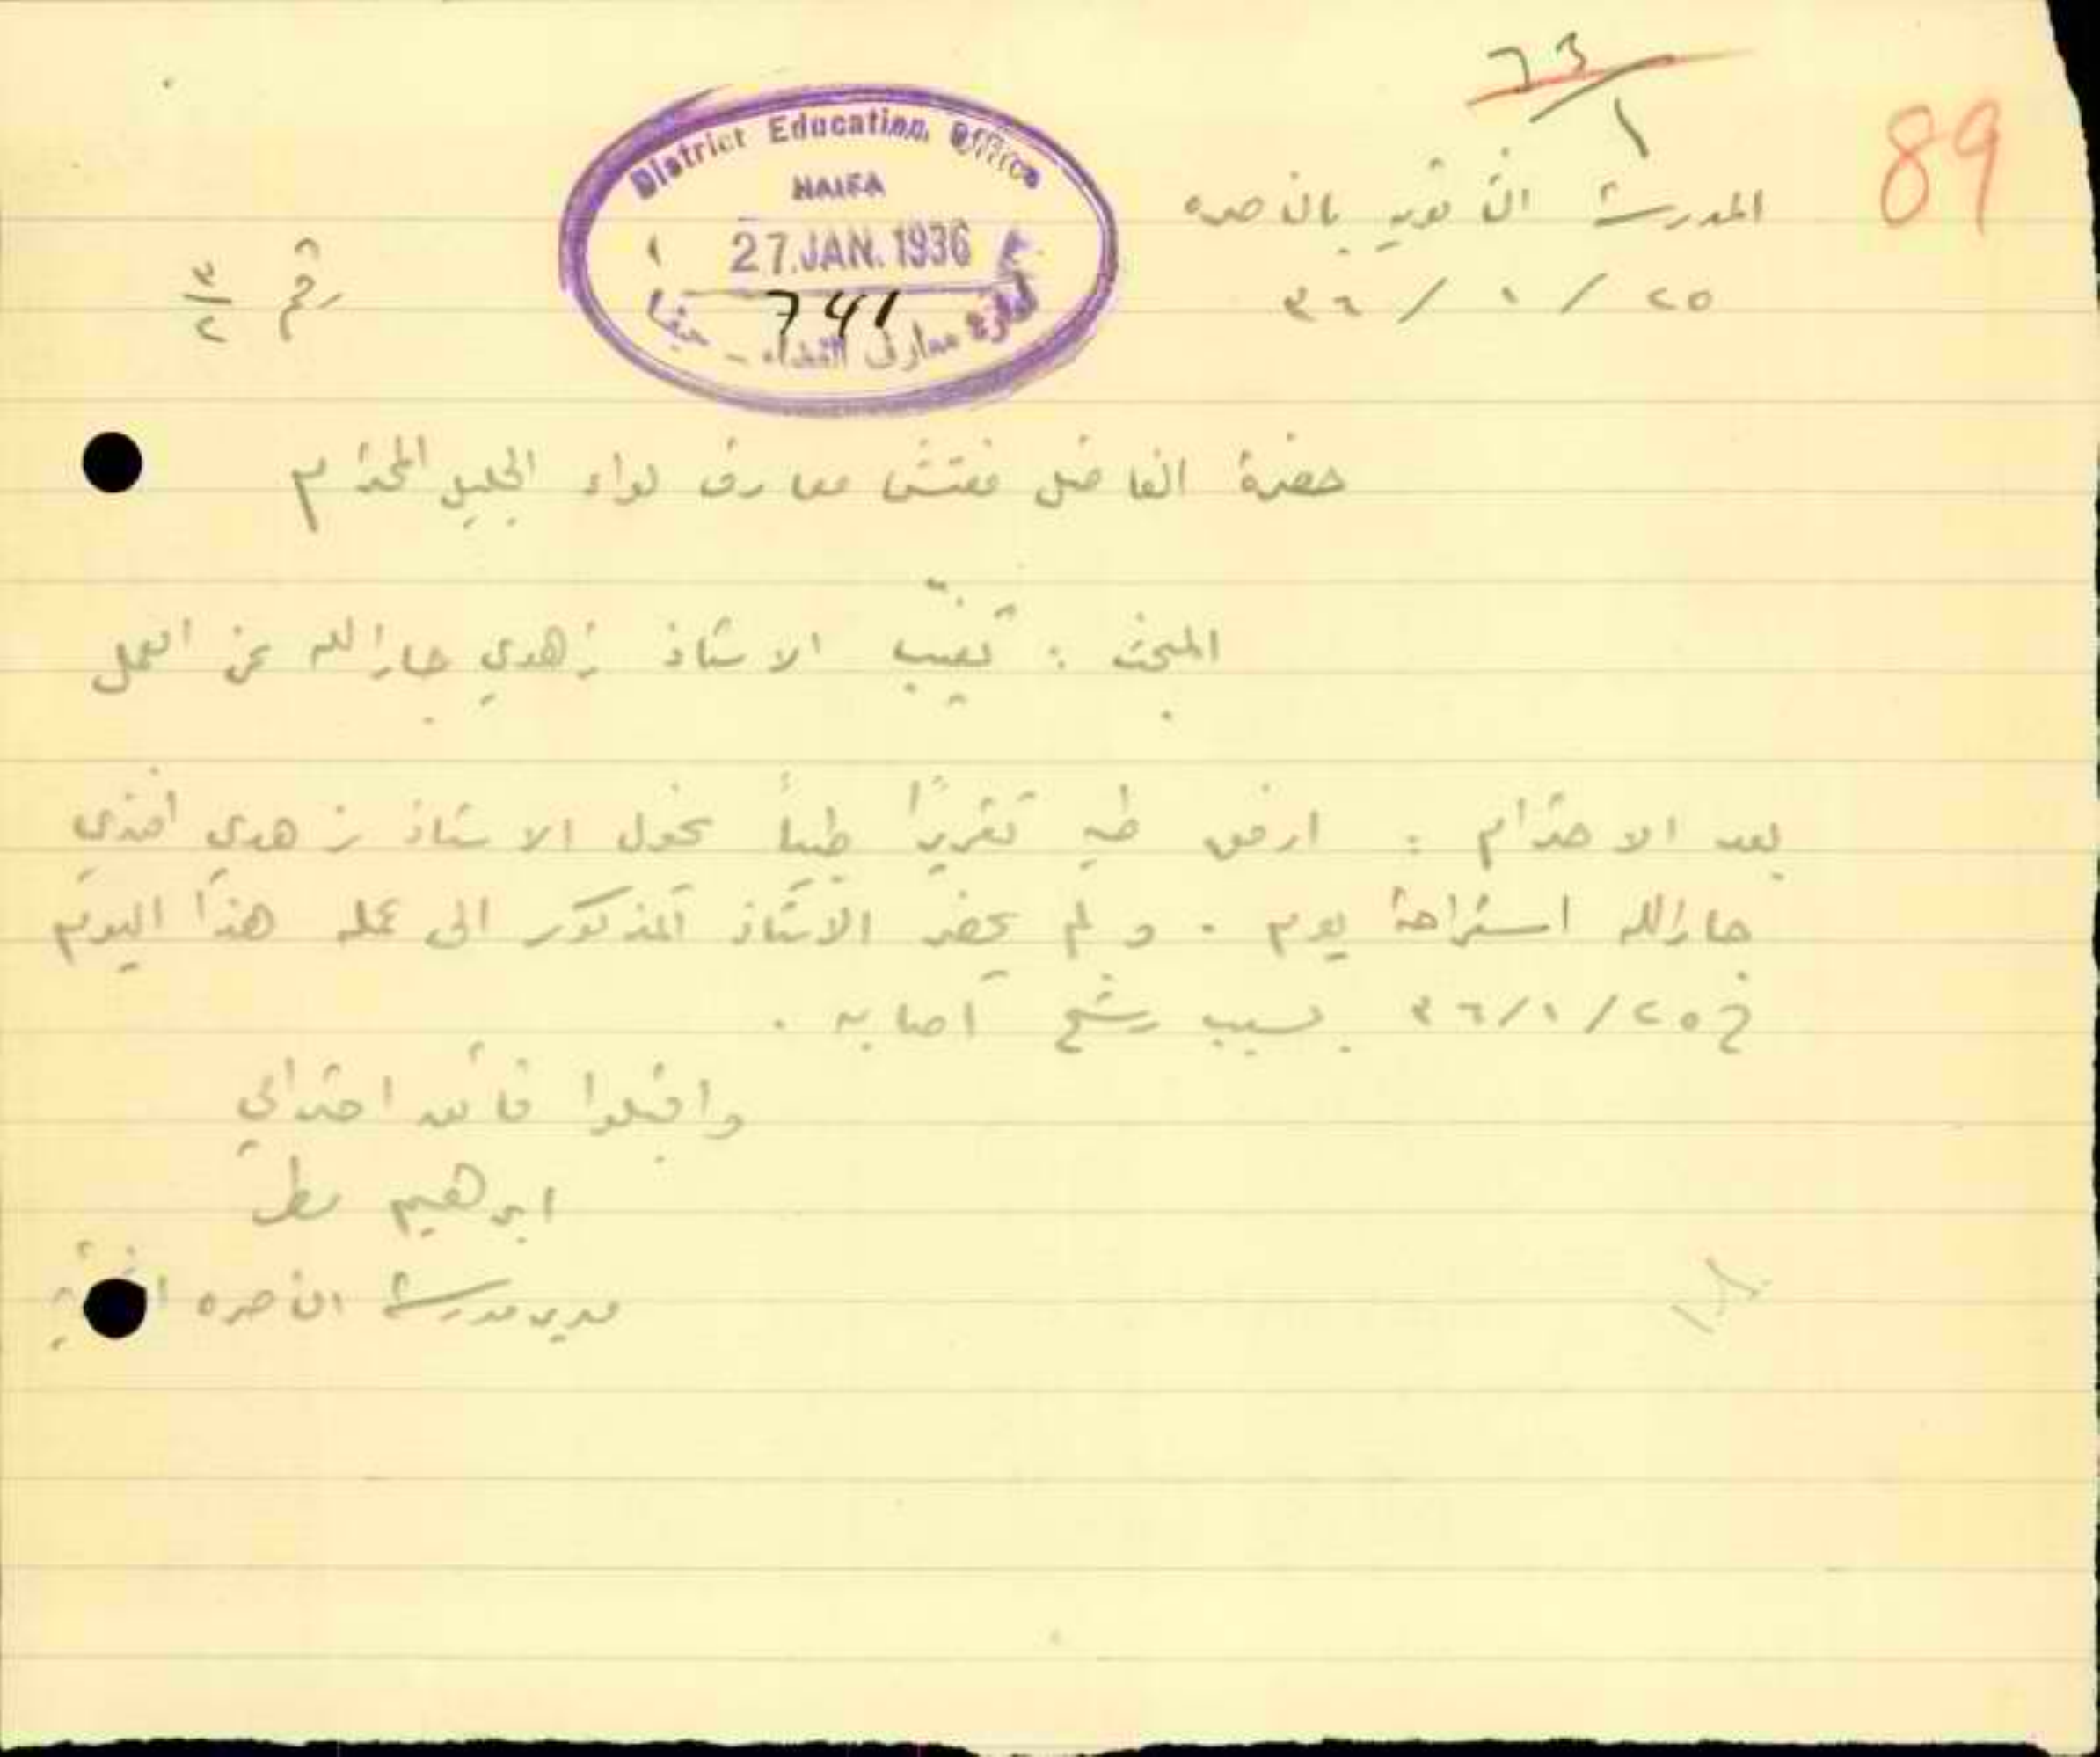 89
73/1
المدرسة الثانويه بالناصره
٢٥ / ١ / ٣٦
رقم ٣/٢
District Education Office
HAIFA
27.JAN.1936
741
ادارة معارف القضاء - حيفا
حضرة الفاضل مفتش معارف لواء الجليل المحترم
المبحث : تغيّب الاستاذ زهدي جارالله عن العمل
بعد الاحترام : ارفق طيه تقريرًا طبيًا يخول الاستاذ زهدي افندي
جارالله استراحة يوم . و لم يحضر الاستاذ المذكور الى عمله هذا اليوم
في ٣٦/١/٢٥ بسبب رشح اصابه .
واقبلوا فائق احترامي
ابرهيم مطر
مدير مدرسة الناصره